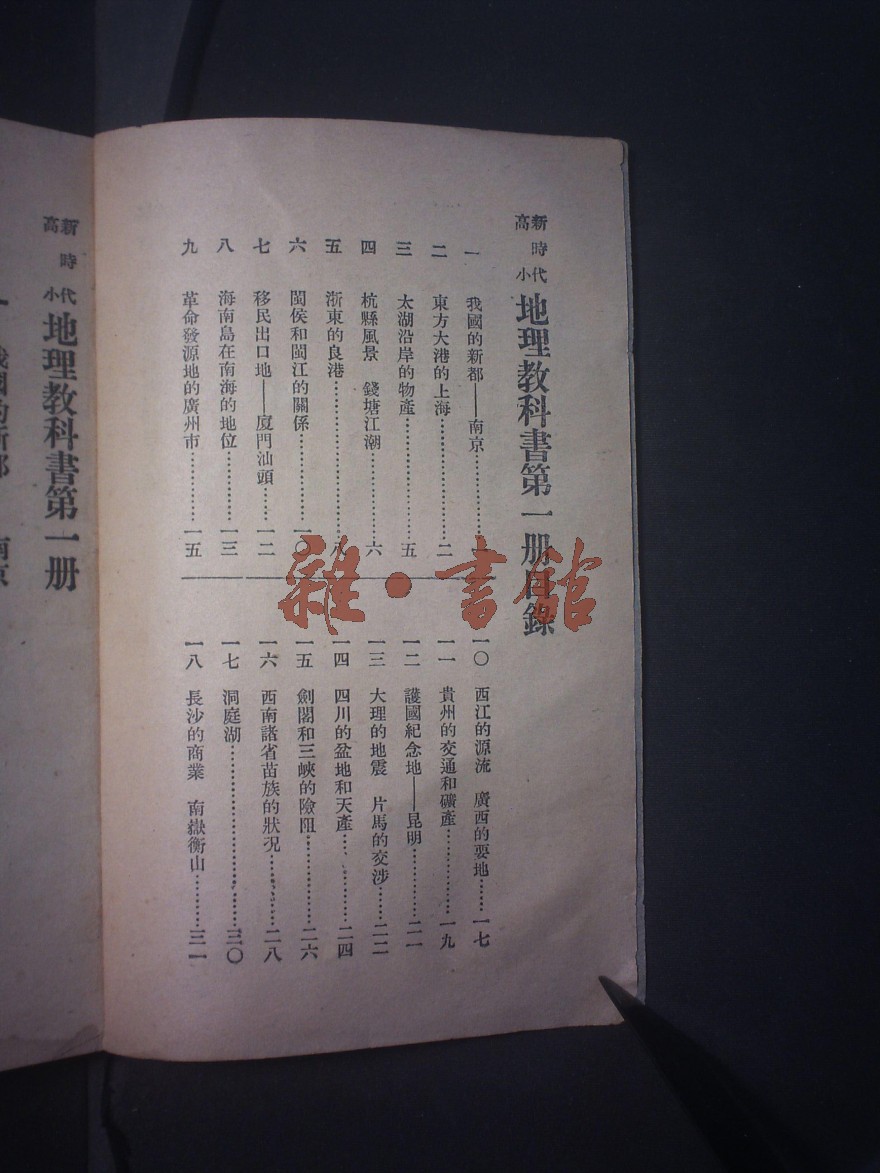 新時代高小
地理教科書第一册目錄
一 我國的新都——南京
二 東方大港的上海 二
三 太湖沿岸的物產 五
四 杭縣風景 錢塘江潮 六
五 浙東的良港 八
六 閩侯和閩江的關係 一〇
七 移民出口地——廈門汕頭 一二
八 海南島在南海的地位 一三
九 革命發源地的廣州市 一五
一〇 西江的源流 廣西的要地 一七
一一 貴州的交通和礦產 一九
一二 護國紀念地——昆明 二一
一三 大理的地震 片馬的交涉 二二
一四 四川的盆地和天產 二四
一五 劍閣和三峽的險阻 二六
一六 西南諸省苗族的狀況 二八
一七 洞庭湖 三〇
一八 長沙的商業 南嶽衡山 三一
新時代高小
地理教科書第一册
一 我國的新都 南京
雜·書館